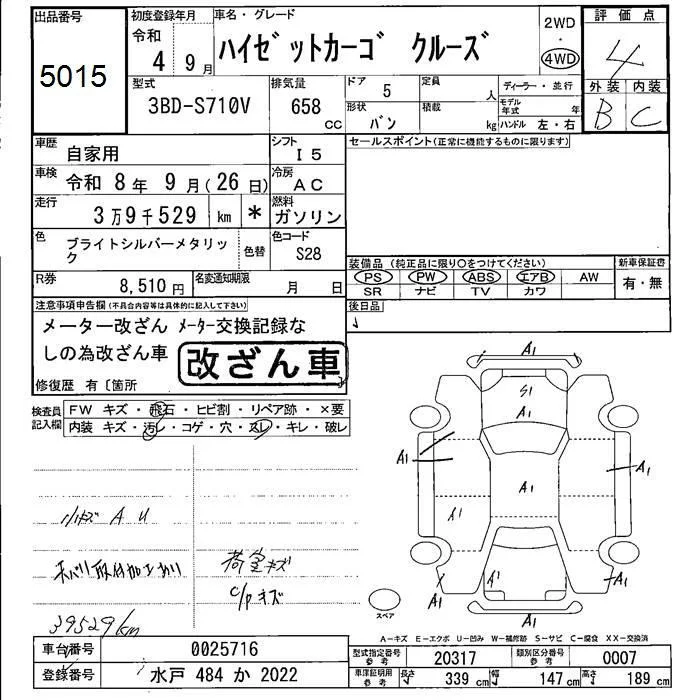 出品番号
5015
初度登録年月
令和
4 9月
車名・グレード
ハイゼットカーゴ クルーズ
2WD
・
4WD
評価点
4
外装 内装
B C
型式
3BD-S710V
排気量
658
CC
ドア
5
定員
人
形状
バン
積載
kg
ディーラー・並行
モデル年式
年
ハンドル 左・右
車歴
自家用
シフト
I5
セールスポイント(正常に機能するものに限ります)
車検
令和 8年 9月(26日)
冷房
AC
走行
3万9千529 km *
燃料
ガソリン
色
ブライトシルバーメタリック
色替
色コード
S28
装備品 (純正品に限り○をつけてください)
PS PW ABS エアB AW
SR ナビ TV カワ
新車保証書
有・無
R券
8,510円
名変通知期限
月 日
後日品
注意事項申告欄(不具合内容等は具体的に記入して下さい)
メーター改ざん メーター交換記録な
しの為改ざん車
改ざん車
修復歴 有〔箇所
検査員
記入欄
FW キズ・飛石・ヒビ割・リペア跡・×要
内装 キズ・汚レ・コゲ・穴・スレ・キレ・破レ
小キズ A U
取付加工あり
荷室キズ
C/Pキズ
39529km
A1
S1
A1
A1
A1
A1
A1
A1
A1
A1
A1
A1
スペア
A-キズ E-エクボ U-凹み W-補修跡 S-サビ C-腐食 XX-交換済
車台番号
0025716
登録番号
水戸 484 か 2022
型式指定番号
参考
20317
類別区分番号
参考
0007
車庫証明用
参考
長さ
339 cm
幅
147 cm
高さ
189 cm